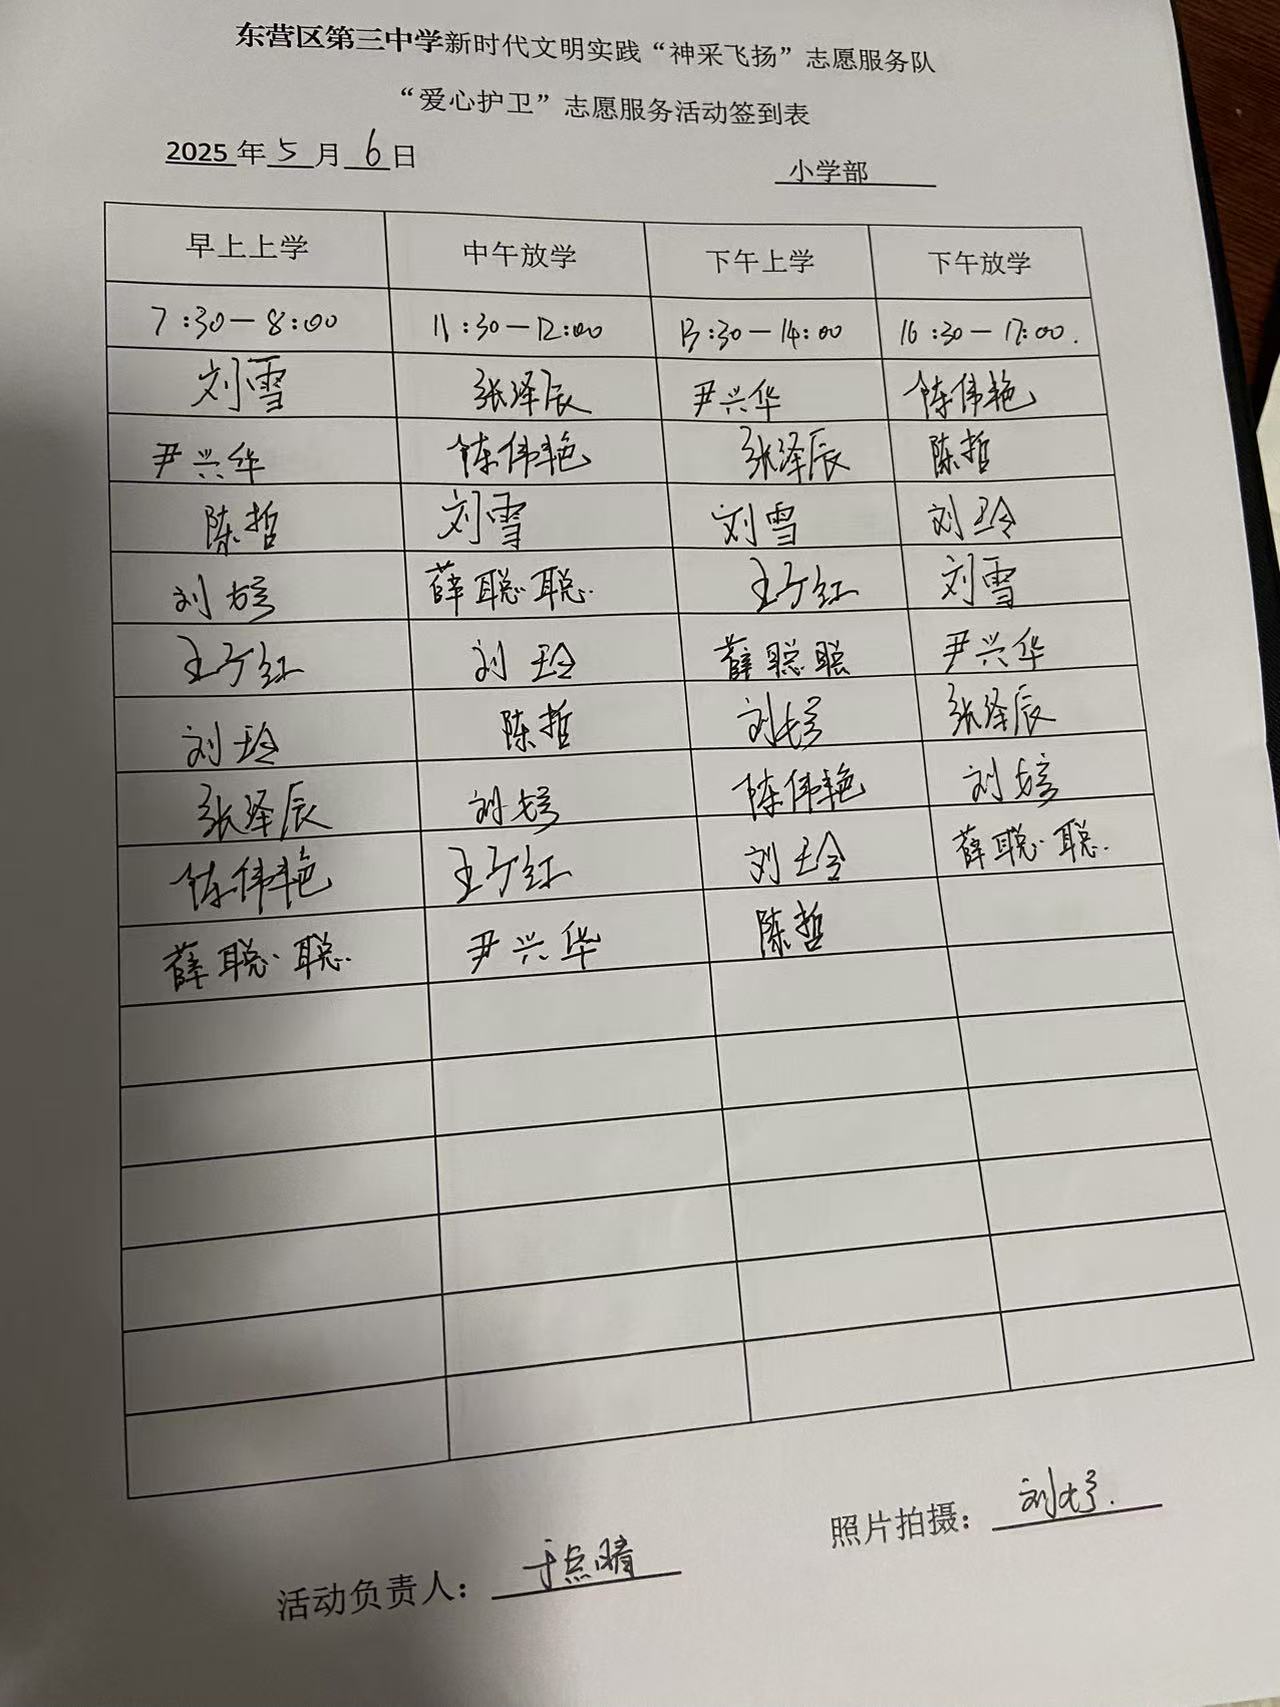 东营区第三中学新时代文明实践“神采飞扬”志愿服务队
“爱心护卫”志愿服务活动签到表
2025年5月6日 小学部
早上上学 中午放学 下午上学 下午放学
7:30—8:00 11:30—12:00 13:30—14:00 16:30—17:00.
刘雪 张泽辰 尹兴华 陈伟艳
尹兴华 陈伟艳 张泽辰 陈哲
陈哲 刘雪 刘雪 刘玲
刘 薛聪聪 王红 刘雪
王红 刘玲 薛聪聪 尹兴华
刘玲 陈哲 刘 张泽辰
张泽辰 刘 陈伟艳 刘
陈伟艳 王红 刘玲 薛聪聪
薛聪聪 尹兴华 陈哲
照片拍摄： 刘
活动负责人： 于点晴